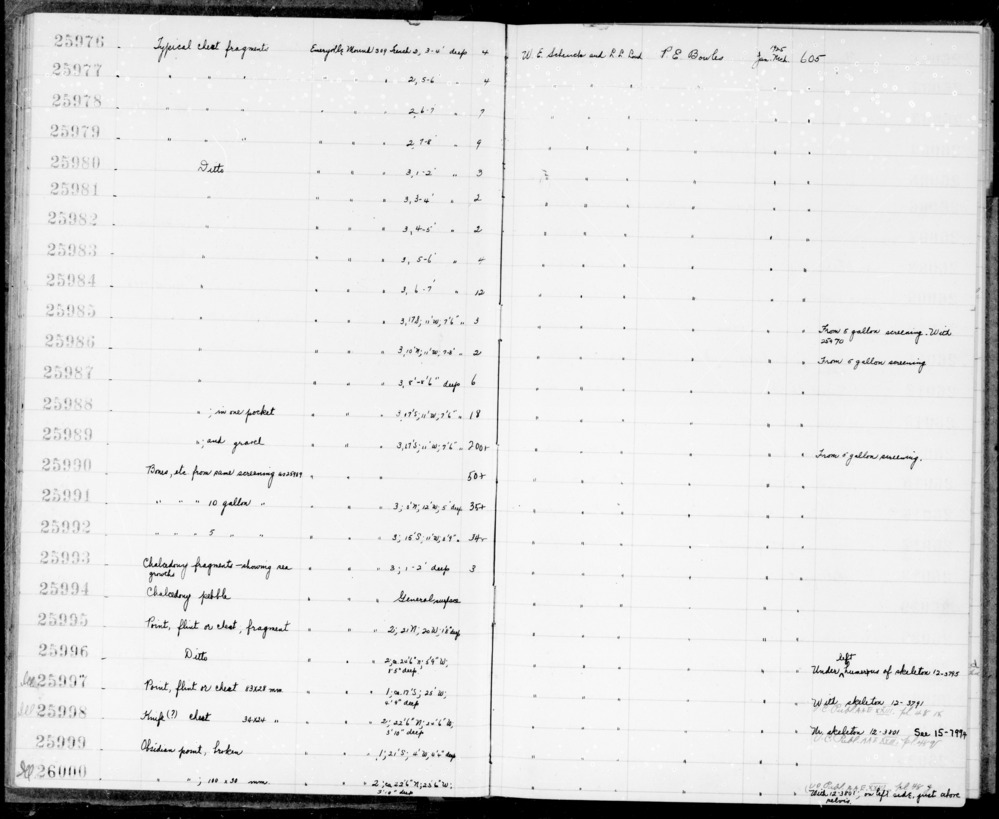 25976 Typical chert fragments Emeryville Mound 309 Trench 2, 3-4' deep 4 W. E. Schenck and P. E. Bowles 1925 Jan. 605
25977 " " " " " " 2, 5-6 4
25978 " " " " " " 2, 6-7 " 7
25979 " " " " " " 2, 7-8' " 9
25980 Ditto " " " 3, 1-2' " 3
25981 " " " " 3, 3-4' " 2
25982 " " " " 3, 4-5' " 2
25983 " " " " 3, 5-6' " 4
25984 " " " " 3, 6-7' " 12
25985 " " " " 3, 17'S; 11'W; 7'6" " 3 From 5 gallon screening. With
25970
25986 " " " " 3, 10'N; 11'W; 7-8' " 2 From 5 gallon screening
25987 " " " " 3, 8'-8'6" deep 6
25988 " ; in one pocket " " " 3, 17'S; 11'W; 7'6" " 18
25989 " ; and gravel " " " 3, 17'S; 11'W; 7'6" " 200+ From 5 gallon screening.
25990 Bones, etc from same screening as 25989 " " " 50+
25991 " " " 10 gallon " " " " 3; 5'N; 12'W; 5' deep 35+
25992 " " " 5 " " " " " 3; 15'S; 11'W; 34+
25993 Chalcedony fragments - showing sea " " " 3; 1-2' deep 3
growths
25994 Chalcedony pebble " " General surface
25995 Point, flint or chert, fragment " " " 2; 21'N; 20'W; 18" deep
25996 Ditto " " " 2; ca 20'6"N; 5'9"W; left
deep Under humerous of skeleton 12-3795
25997 Point, flint or chert 83x28 mm " " " 1; ca 17'S; 25'W;
deep With skeleton 12-3791
25998 Knife (?) chert 36x24 " " " 2; 22'6"N; 20'6"W;
5'10" deep W. skeleton 12-3801 See 15-7994
25999 Obsidian point, broken " " " 1; 21'S; 4'W; deep
26000 " ; 100 x 30 mm. " " " 2; ca 22'6"N; 20'6"W;
deep With 12-3801; on left side, just above
pelvis.